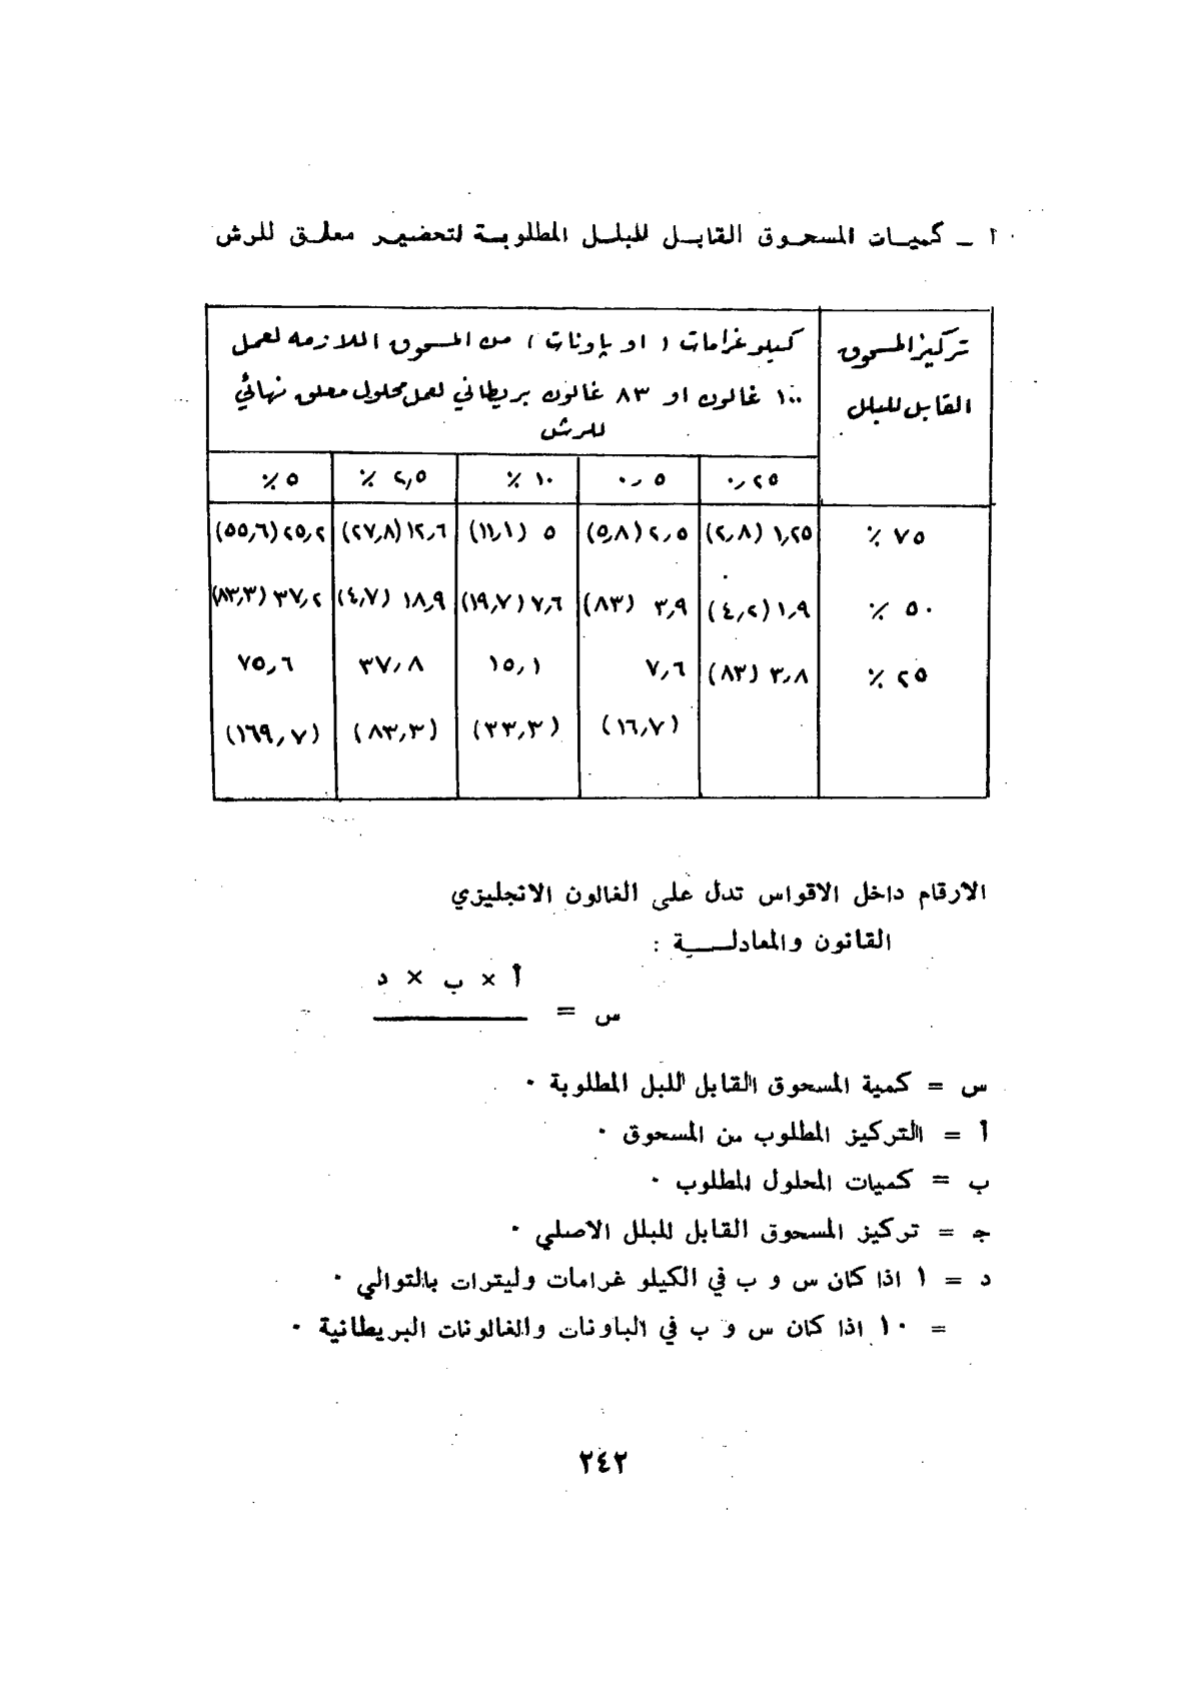 أ ـ كميات المسحوق القابل للبلل المطلوبة لتحضير معلق للرش
تركيز المسحوق القابل للبلل
كيلوغرامات ( او باونات ) من المسحوق اللازمه لعمل
١٠٠ غالون او ٨٣ غالون بريطاني لعمل محلول معلق نهائي
للرش
٠,٢٥ ٠,٥ ١٠ ٪ ٢,٥ ٪ ٥ ٪
٧٥ ٪ ١,٢٥ (٢,٨) ٢,٥ (٥,٨) ٥ (١١,١) ١٢,٦ (٢٧,٨) ٢٥,٢ (٥٥,٦)
٥٠ ٪ ١,٩ (٤,٢) ٣,٩ (٨٣) ٧,٦ (١٩,٧) ١٨,٩ (٤,٧) ٣٧,٢ (٨٣,٣)
٢٥ ٪ ٣,٨ (٨٣) ٧,٦ ١٥,١ ٣٧,٨ ٧٥,٦
(١٦,٧) (٣٣,٣) (٨٣,٣) (١٦٩,٧)
الارقام داخل الاقواس تدل على الغالون الانجليزي
القانون والمعادلــة :
أ × ب × د
س =
س = كمية المسحوق القابل للبل المطلوبة ٠
أ = التركيز المطلوب من المسحوق ٠
ب = كميات المحلول المطلوب ٠
جـ = تركيز المسحوق القابل للبلل الاصلي ٠
د = ١ اذا كان س و ب في الكيلو غرامات وليترات بالتوالي ٠
= ١٠ اذا كان س و ب في الباونات والغالونات البريطانية ٠
٢٤٢